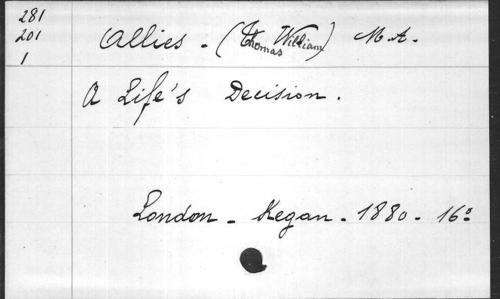 281
201
1
Allies - (Thomas William) M.A.
A Life's Decision.
London - Kegan - 1880 - 16º